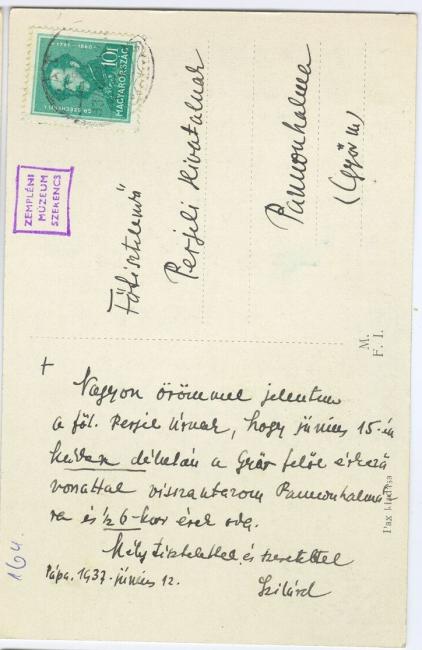 10f
MAGYARORSZÁG
GR. SZÉCHENYI I.
ZEMPLÉNI
MÚZEUM
SZERENCS
Főtisztelendő
Perjeli Hivatalnak
Pannonhalma
(Győr m)
M.
F. I.
Pax kiadása
+
Nagyon örömmel jelentem
a főt. Perjel Úrnak, hogy június 15-én
kedden délután a Győr felől érkező
vonattal visszautazom Pannonhalmá-
ra és ½ 6-kor érek oda.
Mély tisztelettel és szeretettel
Pápa, 1937. június 12.
Szilárd
164.